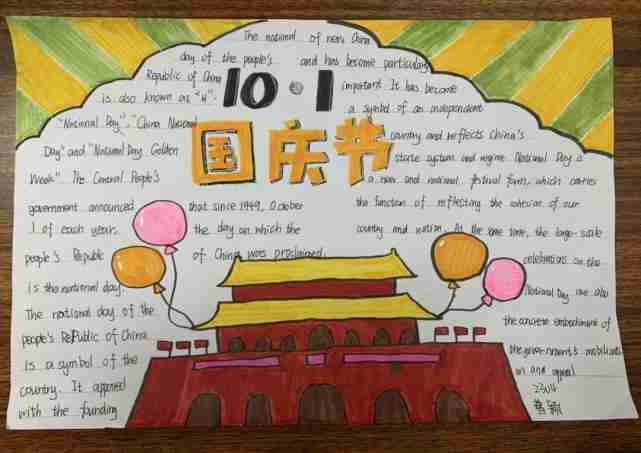 10·1
国庆节
The national
day of the people's
Republic of China
is also known as "11".
"National Day", "China National
Day" and "National Day Golden
Week". The Central People's
government announced
that since 1949, October
1 of each year.
the day on which the
people's Republic
of China was proclaimed,
is the national day.
The national day of the
people's Republic of China
is a symbol of the
country. It appeared
with the founding
of new China
and has become particularly
important. It has become
a symbol of an independent
country and reflects China's
state system and regime. National Day is
a new and national festival form, which carries
the function of reflecting the cohesion of our
country and nation. At the same time, the large-scale
celebrations on the
National Day are also
the concrete embodiment of
the government's mobilizati
on and appeal